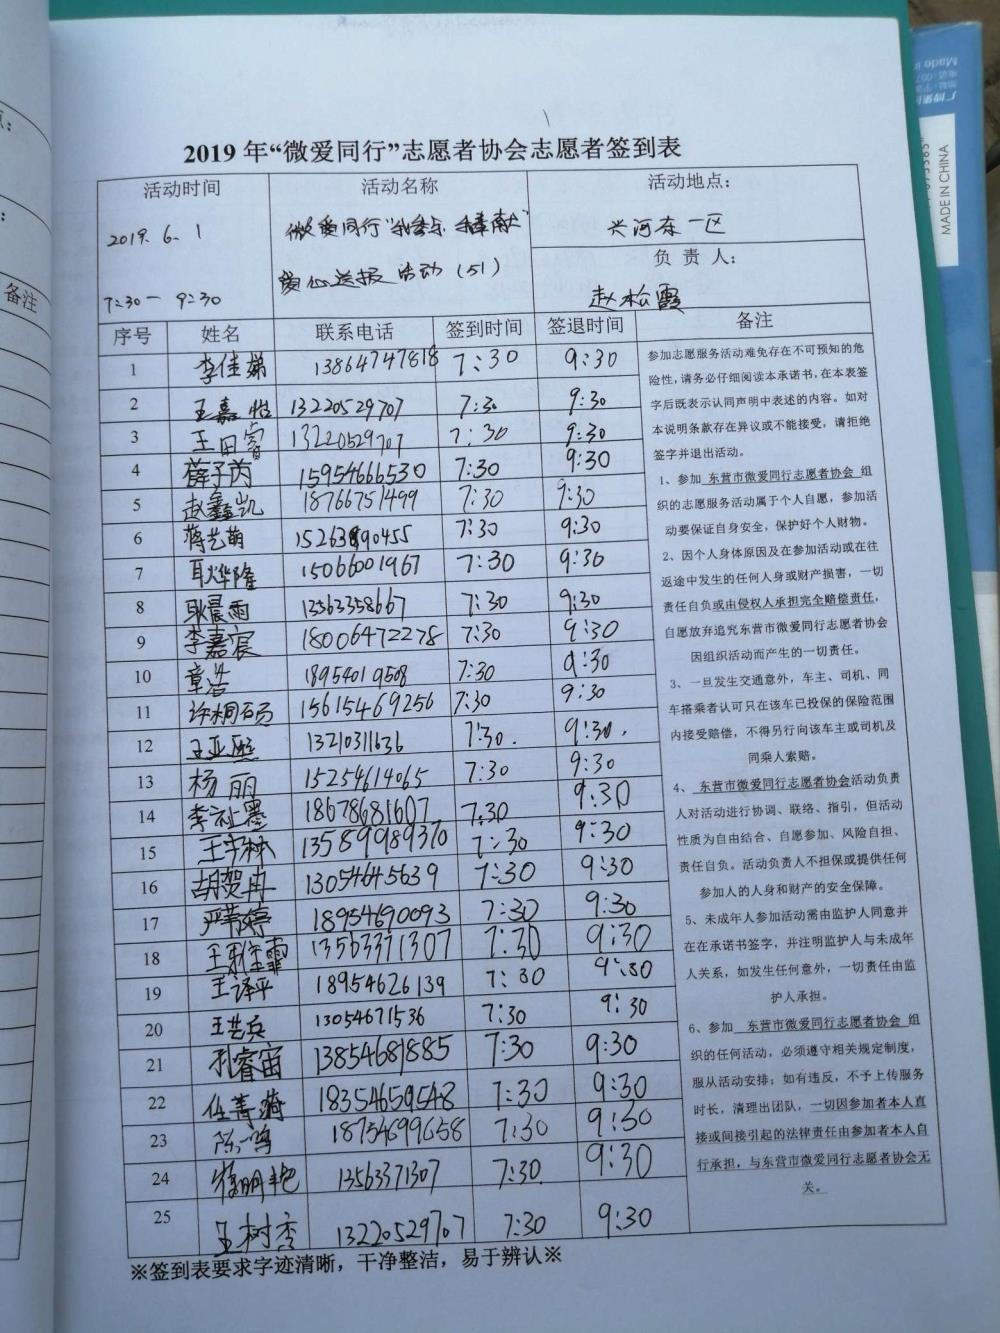 2019年“微爱同行”志愿者协会志愿者签到表
活动时间 活动名称 活动地点：
2019.6.1 微爱同行“我参与 我奉献” 兴河东一区
负责人：
7:30—9:30 爱心送报活动（51） 赵松霞
序号 姓名 联系电话 签到时间 签退时间 备注
1 李佳娣 13864747818 7:30 9:30
2 王嘉怡 13220529707 7:30 9:30
3 王田睿 13220529707 7:30 9:30
4 薛子芮 15954666530 7:30 9:30
5 赵鑫凯 18766751499 7:30 9:30
6 蒋艺萌 15263890455 7:30 9:30
7 耿烨隆 15066001967 7:30 9:30
8 耿晨雨 13563358667 7:30 9:30
9 李嘉宸 18006472278 7:30 9:30
10 章浩 18954019508 7:30 9:30
11 许桐硕 15615469256 7:30 9:30
12 王亚熙 13210311636 7:30. 9:30.
13 杨丽 15254614065 7:30 9:30
14 李祉墨 18678681607 7:30 9:30
15 王宇林 13589989370 7:30 9:30
16 胡贺冉 13054645639 7:30 9:30
17 严菁婷 18954690093 7:30 9:30
18 王霏 13563371307 7:30 9:30
19 王译平 18954626139 7:30 9:30
20 王芸兵 13054671536 7:30 9:30
21 孔睿宙 13854681885 7:30 9:30
22 任菁漪 18354659548 7:30 9:30
23 陈一鸣 18754699658 7:30 9:30
24 明艳 13563371307 7:30 9:30
25 王树杏 13220529707 7:30 9:30
参加志愿服务活动难免存在不可预知的危
险性，请务必仔细阅读本承诺书，在本表签
字后既表示认同声明中表述的内容。如对
本说明条款存在异议或不能接受，请拒绝
签字并退出活动。
1、参加 东营市微爱同行志愿者协会 组
织的志愿服务活动属于个人自愿，参加活
动要保证自身安全，保护好个人财物。
2、因个人身体原因及在参加活动或在往
返途中发生的任何人身或财产损害，一切
责任自负或由侵权人承担完全赔偿责任，
自愿放弃追究东营市微爱同行志愿者协会
因组织活动而产生的一切责任。
3、一旦发生交通意外，车主、司机、同
车搭乘者认可只在该车已投保的保险范围
内接受赔偿，不得另行向该车主或司机及
同乘人索赔。
4、东营市微爱同行志愿者协会活动负责
人对活动进行协调、联络、指引，但活动
性质为自由结合、自愿参加、风险自担、
责任自负。活动负责人不担保或提供任何
参加人的人身和财产的安全保障。
5、未成年人参加活动需由监护人同意并
在在承诺书签字，并注明监护人与未成年
人关系，如发生任何意外，一切责任由监
护人承担。
6、参加 东营市微爱同行志愿者协会 组
织的任何活动，必须遵守相关规定制度，
服从活动安排；如有违反，不予上传服务
时长，清理出团队，一切因参加者本人直
接或间接引起的法律责任由参加者本人自
行承担，与东营市微爱同行志愿者协会无
关。
※签到表要求字迹清晰，干净整洁，易于辨认※
备注
MADE IN CHINA
Made in